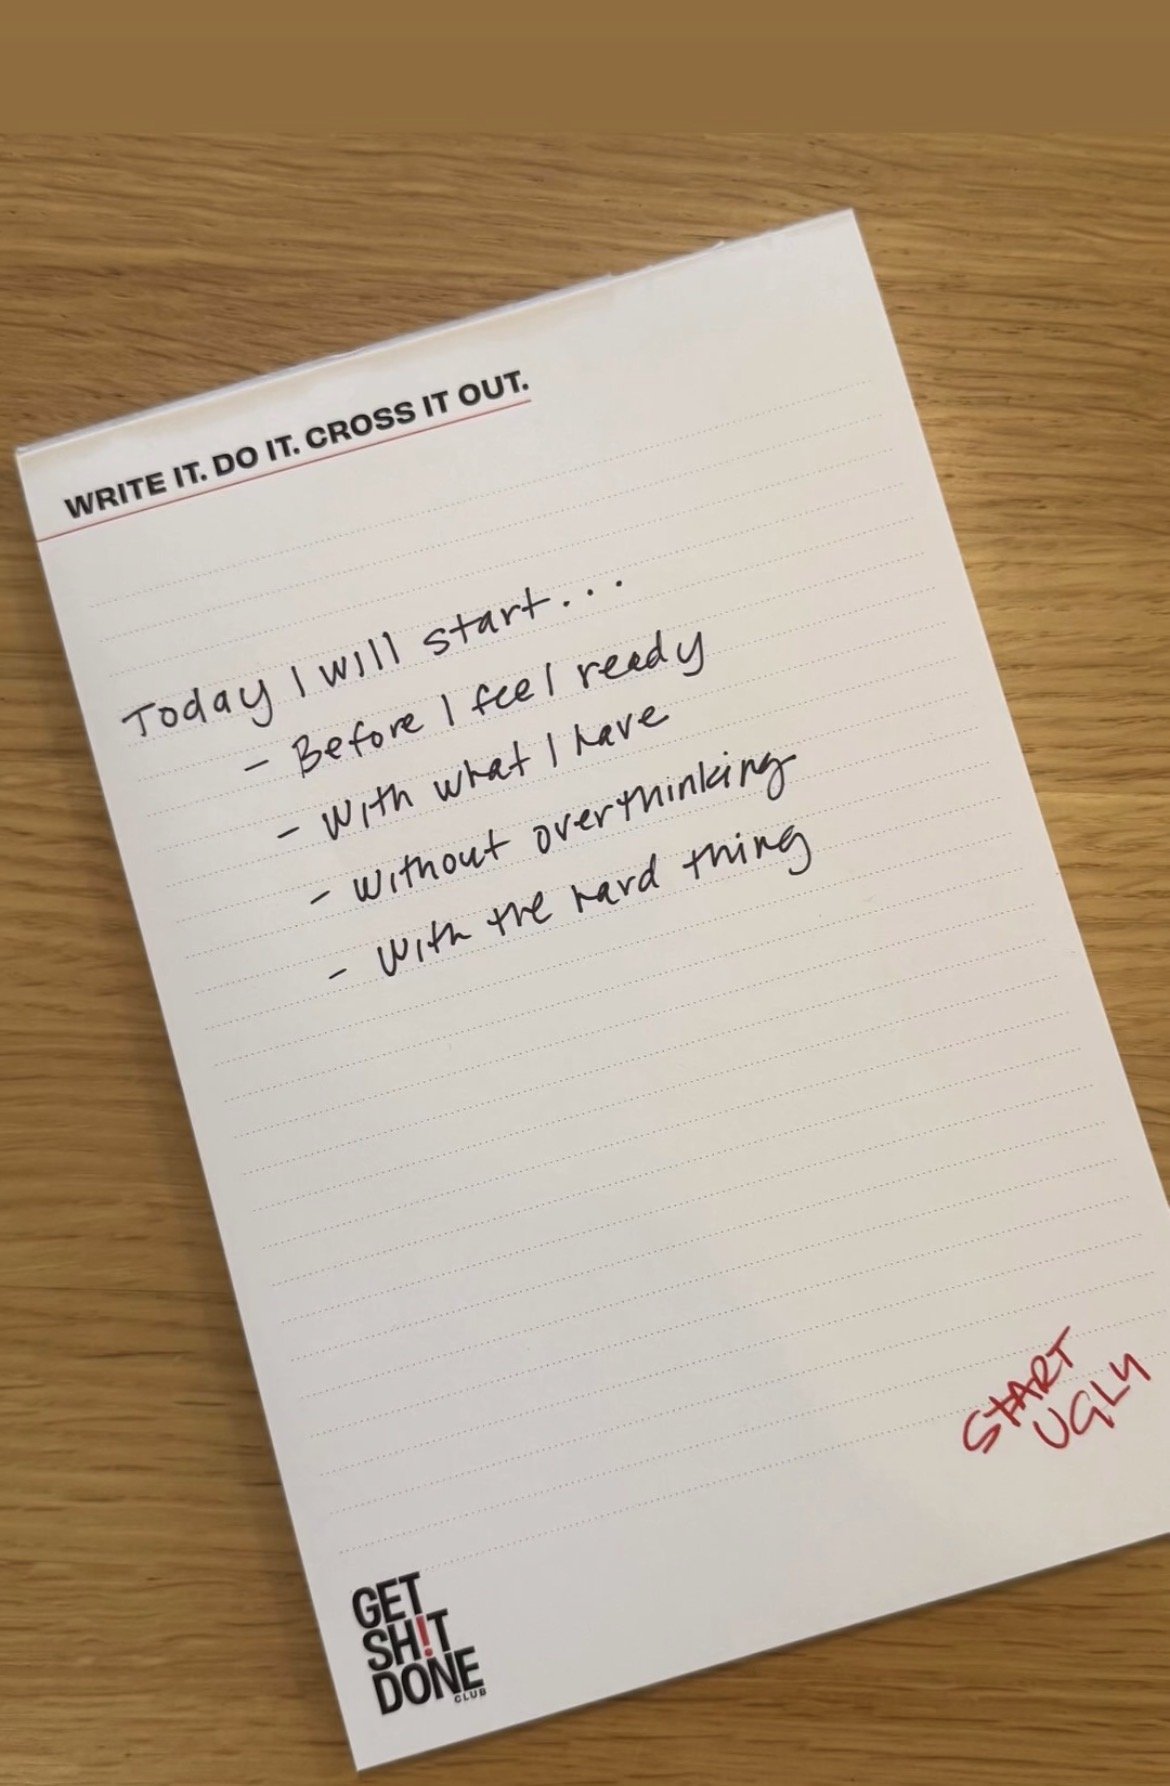 WRITE IT. DO IT. CROSS IT OUT.
Today I will start...
- Before I feel ready
- With what I have
- Without overthinking
- With the hard thing
START
UGLY
GET
SH!T
DONE
CLUB